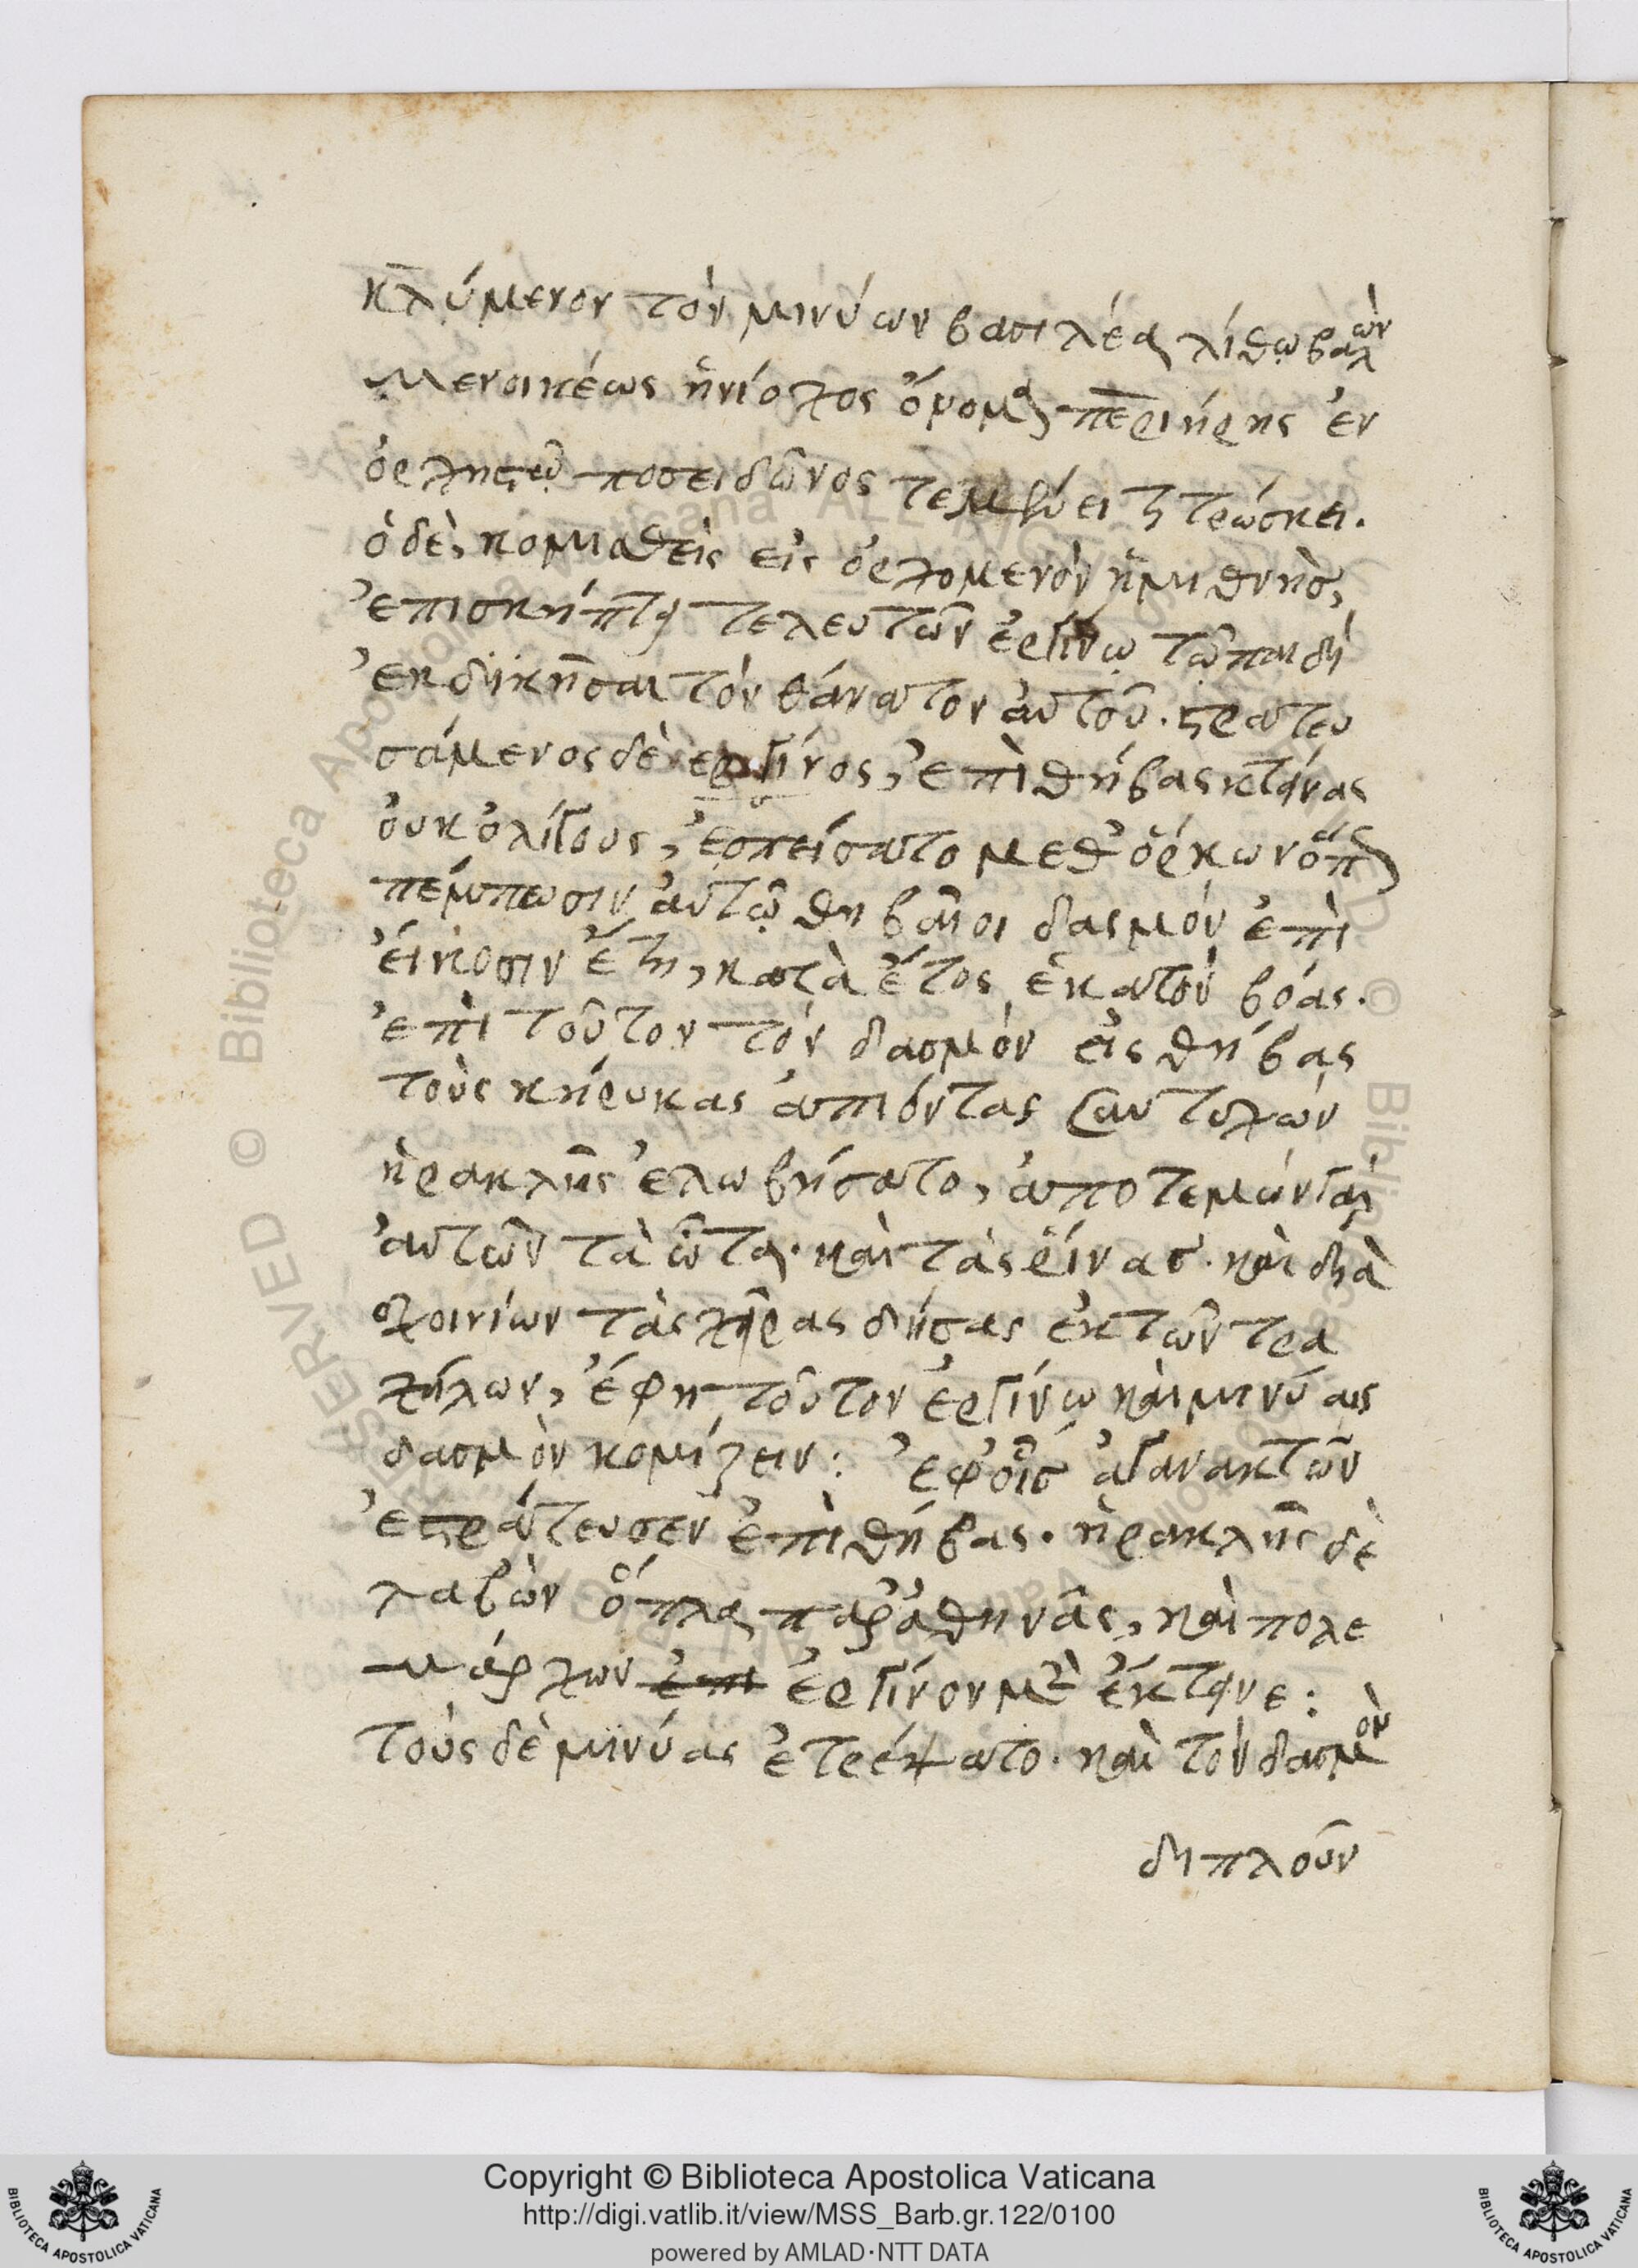 κλύμενον τὸν μινύων βασιλέα λίθῳ βαλὼν
μενοικέως ἡνίοχος ὄνομα περιήρης ἐν
ποσειδῶνος τεμένει τιτρώσκει.
ὁ δὲ, κομισθεὶς εἰς ὀρχομενὸν ἡμιθνὴς,
ἐπισκήπτει τελευτῶν ἐργίνῳ τῷ παιδὶ
ἐκδικῆσαι τὸν θάνατον αὐτοῦ. στρατευ
σάμενος δὲ ἐργίνος, ἐπὶ θήβας κτείνας
οὐκ ὀλίγους, ἐσπείσατο μεθ' ὅρκων ὅπως
πέμπωσιν αὐτῷ θηβαῖοι δασμόν ἐπὶ
εἴκοσιν ἔτη, κατὰ ἔτος ἑκατὸν βόας.
ἐπὶ τοῦτον τὸν δασμὸν εἰς θήβας
τοὺς κήρυκας ἀπιόντας συντυχὼν
ἡρακλῆς ἐλωβήσατο, ἀποτεμών γὰρ
αὐτῶν τὰ ὦτα. καὶ τὰς ῥίνας. καὶ διὰ
σχοινίων τὰς χεῖρας δήσας ἐκ τῶν τρα
χήλων, ἔφη τοῦτον ἐργίνῳ καὶ μινύαις
δασμὸν κομίζειν: ἐφ' οἷς ἀγανακτῶν
ἐστράτευσεν ἐπὶ θήβας. ἡρακλῆς δὲ
λαβὼν ὅπλα παρ' ἀθηνᾶς, καὶ πολε
μάρχων ἐπι ἐργίνον μὲν ἔκτεινε:
τοὺς δὲ μινύας ἐτρέψατο. καὶ τὸν δασμὸν
διπλοῦν
Copyright © Biblioteca Apostolica Vaticana
http://digi.vatlib.it/view/MSS_Barb.gr.122/0100
powered by AMLAD·NTT DATA
BIBLIOTECA APOSTOLICA VATICANA
BIBLIOTECA APOSTOLICA VATICANA